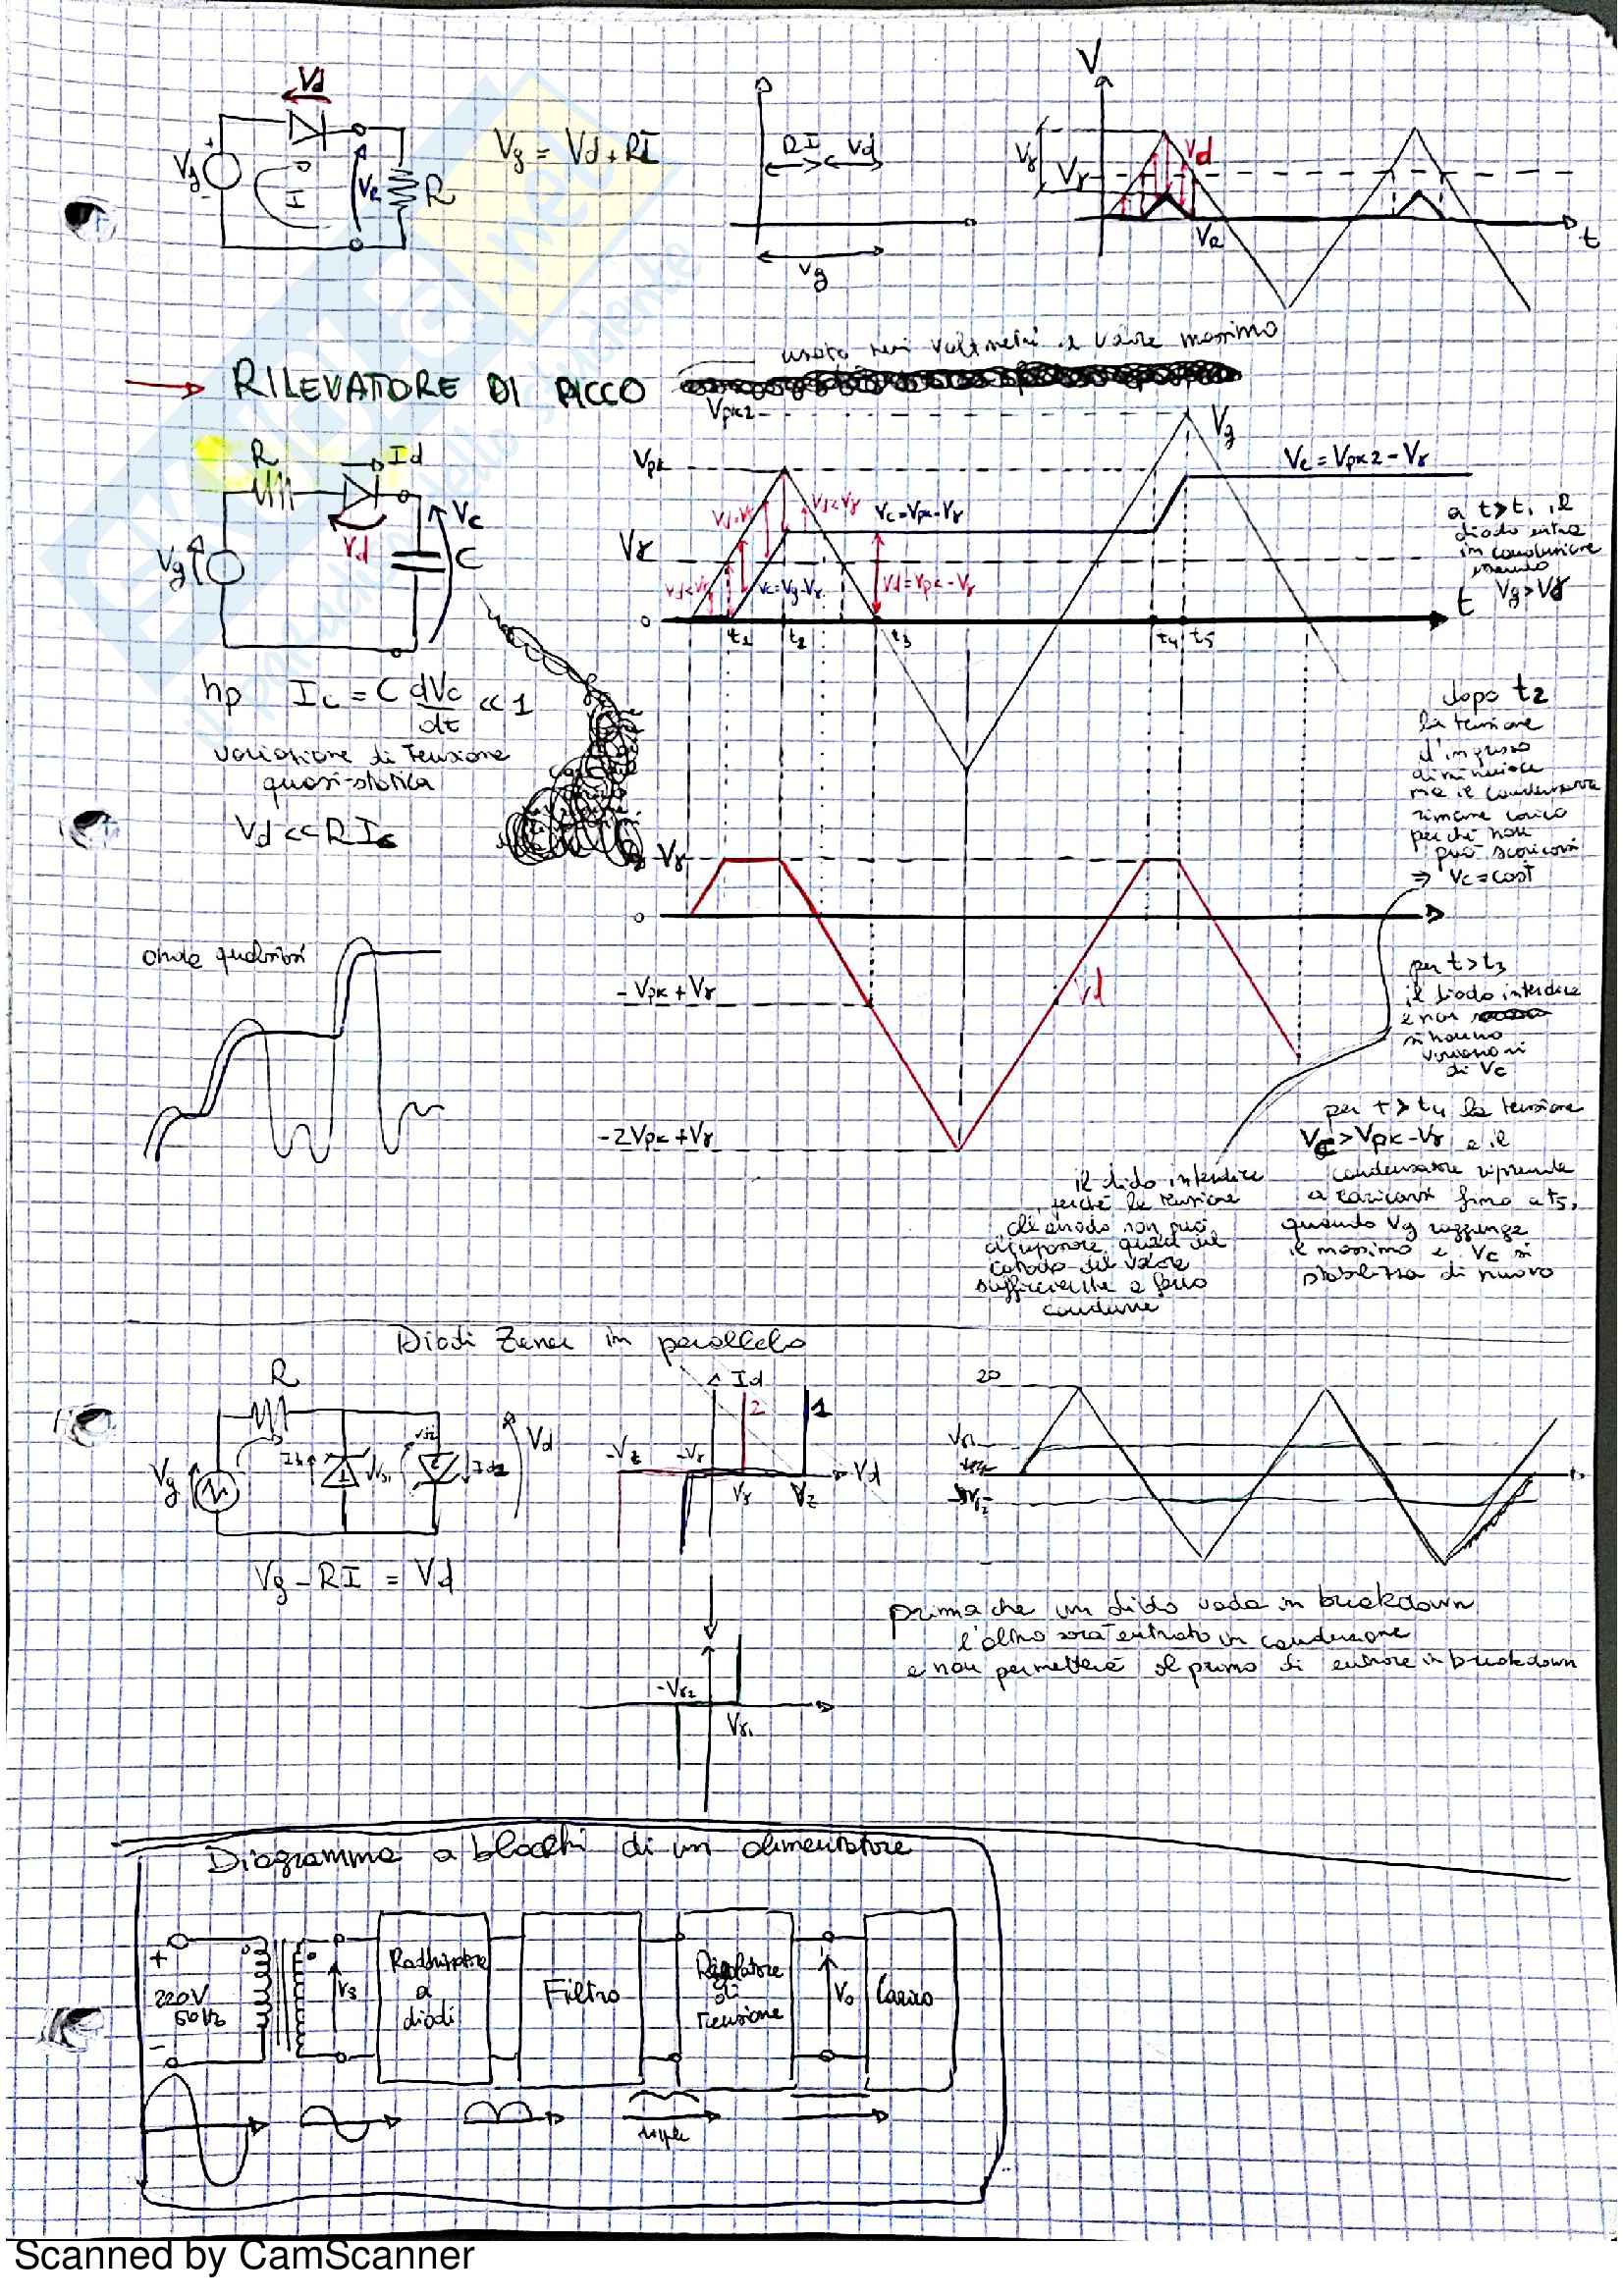 Vd
Vg
VR
R
Vg = Vd + RI
RI
Vd
Vg
V
Vγ
Vd
VR
t
usato nei voltmetri a valore massimo
RILEVATORE DI PICCO
R
Id
Vd
Vc
C
Vg
Vpk2
Vg
Vpk
Vc = Vpk2 - Vγ
Vc = Vpk - Vγ
Vγ
Vd<Vγ
Vc = Vg - Vγ
Vd = Vpk - Vγ
0
t1
t2
t3
t4
t5
t
a t>t1 il
diodo entra
in conduzione
essendo
Vg > Vγ
hp Ic = C dVc/dt << 1
variazione di tensione
quasi-statica
Vd << RIc
dopo t2
la tensione
d'ingresso
diminuisce
ma il condensatore
rimane carico
perché non
può scaricarsi
⇒ Vc = cost
Vγ
0
- Vpk + Vγ
Vd
- 2Vpk + Vγ
onde qualsiasi
per t > t3
il diodo interdice
e non
si hanno
variazioni
di Vc
per t > t4 la tensione
Vc > Vpk - Vγ e il
condensatore riprende
a caricarsi fino a t5,
quando Vg raggiunge
il massimo e Vc si
stabilizza di nuovo
il diodo interdice
perché la tensione
all'anodo non può
superare quella del
catodo del valore
sufficiente a farlo
condurre
Diodi Zener in parallelo
R
Vg
1
2
Id2
Vd
Id
2
1
-Vz
-Vγ
Vd
Vγ
Vz
20
Vγ1
Vg - RI = Vd
prima che un diodo vada in breakdown
l'altro sarà entrato in conduzione
e non permetterà al primo di entrare in breakdown
-Vγ2
Vγ1
Diagramma a blocchi di un alimentatore
+
220V
50Hz
-
Vs
Raddrizzatore
a
diodi
Filtro
Regolatore
di
Tensione
Vo
Carico
ripple
Scanned by CamScanner